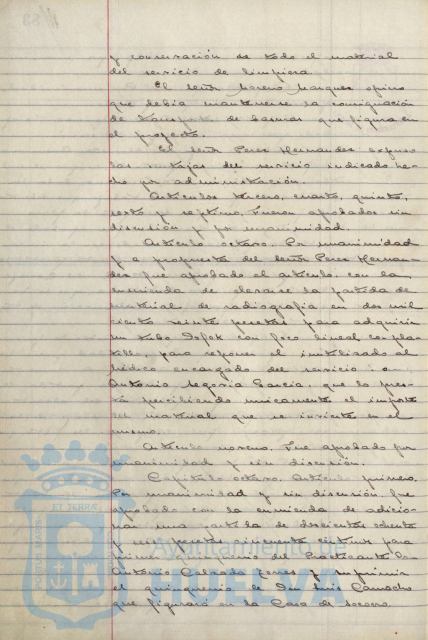 y conservación de todo el material
del servicio de limpieza.
El Señor Moreno Marquez opinó
que debía mantenerse la consignación
de transporte de basuras que figura en
el proyecto.
El Señor Perez Hernandez expuso
las ventajas del servicio indicado he-
cho por administración.
Artículos tercero, cuarto, quinto,
sexto y séptimo. Fueron aprobados sin
discusión y por unanimidad.
Artículo octavo. Por unanimidad
y a propuesta del Señor Perez Hernan-
dez fue aprobado el artículo, con la
enmienda de elevarse la partida de
material de radiografía en dos mil
ciento veinte pesetas para adquirir
un tubo con foco lineal
para reponer el inutilizado al
médico encargado del servicio
Antonio Segovia Garcia, que lo pres-
tará percibiendo unicamente el importe
del material que se invierta en el
mismo.
Artículo noveno. Fue aprobado por
unanimidad y sin discusión.
Capítulo octavo. Artículo primero.
Por unanimidad y sin discusión fue
aprobado con la enmienda de adicio-
nar una partida de doscientas ochenta
y pesetas cincuenta céntimos para
primer quinquenio del Practicante
Antonio y suprimir
el quinquenio de Don Luis Camacho
que figuraró en la Casa de Socorro.
Ayuntamiento de
HUELVA